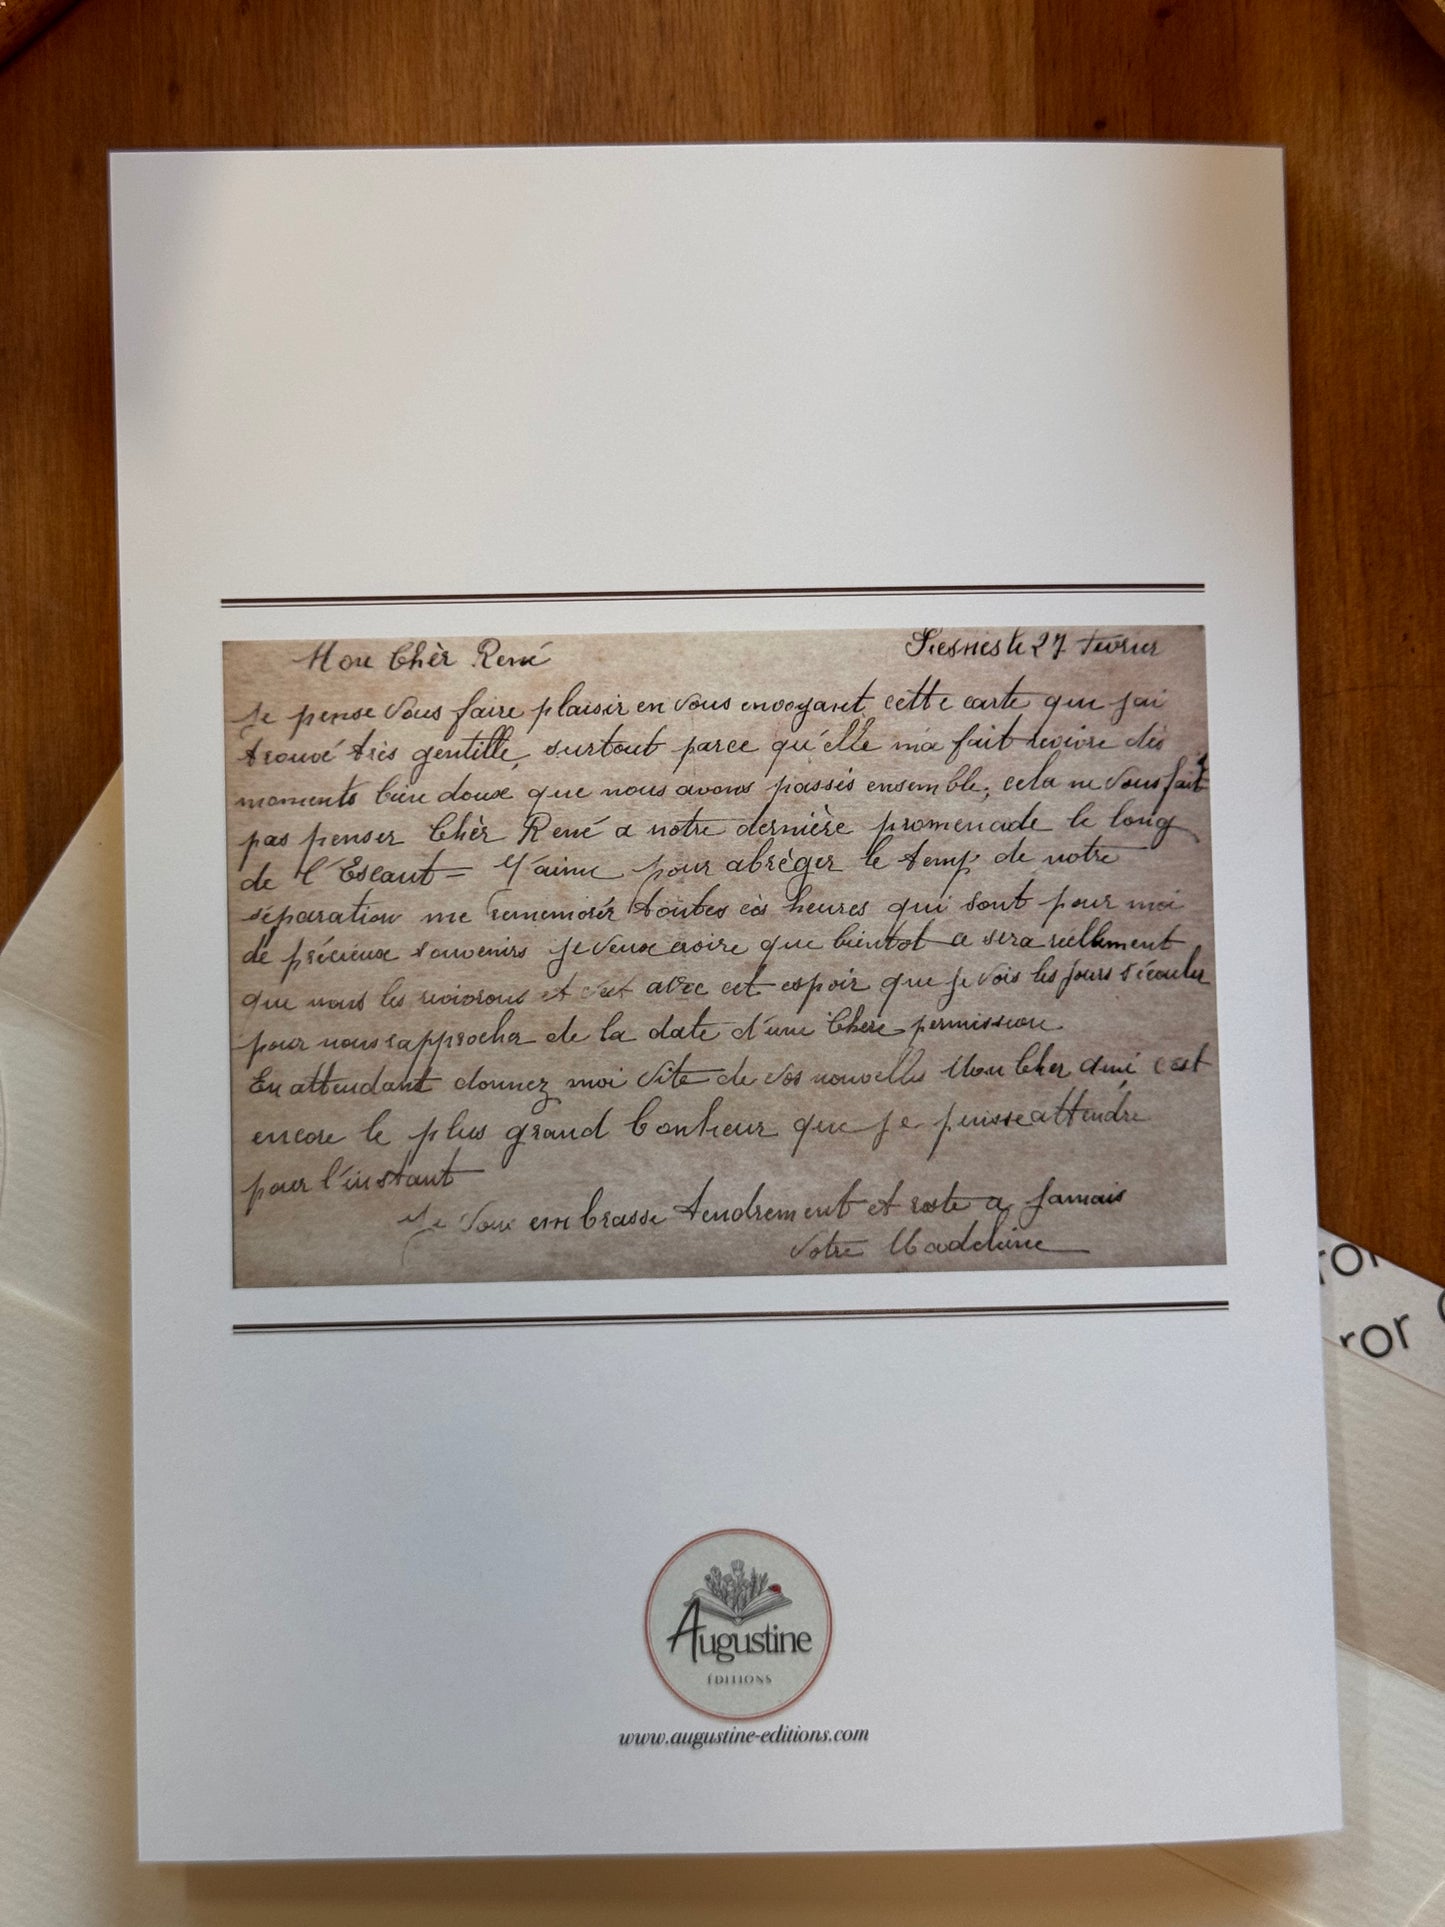 Mon Chèr René
Fresnes le 27 Février
Je pense vous faire plaisir en vous envoyant cette carte que j'ai
trouvé très gentille, surtout parce qu'elle m'a fait revivre des
moments bien doux que nous avons passés ensemble, cela ne vous fait
pas penser Chèr René a notre dernière promenade le long
de l'Escaut = J'aime pour abrèger le temp de notre
séparation me rememorér toutes ces heures qui sont pour moi
de précieux souvenirs je veux croire que bientot ce sera réellement
que nous les revivrons et c'est avec cet espoir que je vois les jours s'écouler
pour nous rapprocher de la date d'une Chère permission
En attendant donnez moi vite de vos nouvelles Mon Cher ami c'est
encore le plus grand bonheur que je puisse attendre
pour l'instant
Je vous embrasse tendrement et reste a jamais
votre Madeleine
Augustine
ÉDITIONS
www.augustine-editions.com
ror
ror